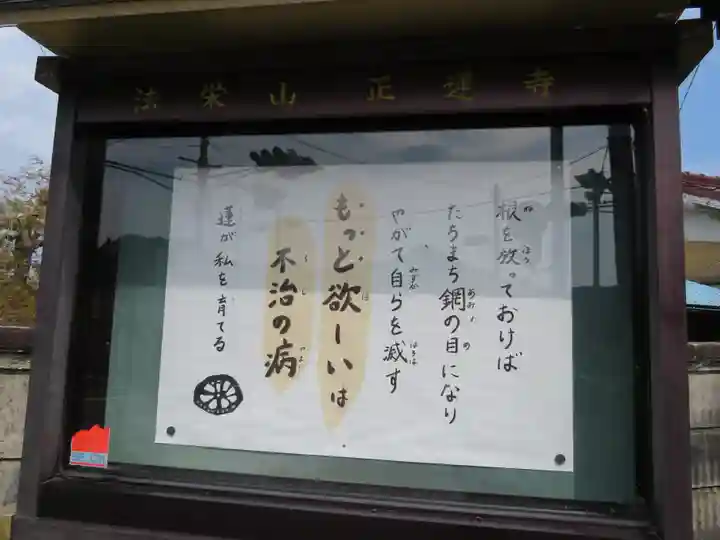 法栄山 正蓮寺
根を放っておけば
たちまち網の目になり
やがて自らを滅す
もっと欲しいは
不治の病
蓮が私を育てる